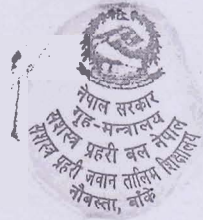 नेपाल सरकार
गृह-मन्त्रालय
सशस्त्र प्रहरी बल नेपाल
सशस्त्र प्रहरी जवान तालिम शिक्षालय
नौबस्ता, बाँके